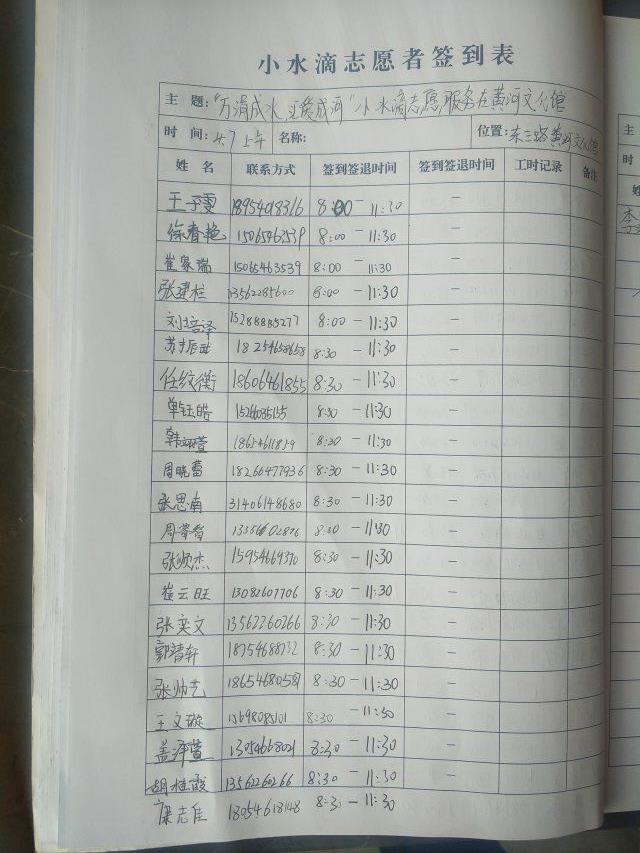 小水滴志愿者签到表
主 题: "万涓成水 汇爱成河" 小水滴志愿服务在黄河文化馆
时 间: 4.7 上午 名称: 位置: 东三路黄河文化馆
姓 名 联系方式 签到签退时间 签到签退时间 工时记录 备注
王子雯 18954018316 8:00 - 11:30 -
徐春艳 15065463539 8:00 - 11:30 -
崔家瑞 15065463539 8:00 - 11:30 -
张建栏 13562285600 8:00 - 11:30 -
刘培泽 15288885277 8:00 - 11:30 -
苏 18254658658 8:30 - 11:30 -
任纹衡 18606461855 8:30 - 11:30 -
单钰皓 8:30 - 11:30 -
韩翊萱 8:30 - 11:30 -
周晓蕾 18266477936 8:30 - 11:30 -
张思南 31406148680 8:30 - 11:30 -
周 8:30 - 11:30 -
张顺杰 15954669370 8:30 - 11:30 -
崔云旺 13082607706 8:30 - 11:30 -
张奕文 13562260266 8:30 - 11:30 -
郭靖轩 18754688732 8:30 - 11:30 -
张帅艺 8:30 - 11:30 -
王文璇 8:30 - 11:30 -
盖泽萱 13054668021 8:30 - 11:30 -
胡桂霞 13562260266 8:30 - 11:30 -
志佳 18054618148 8:30 - 11:30
主
时
姓
李